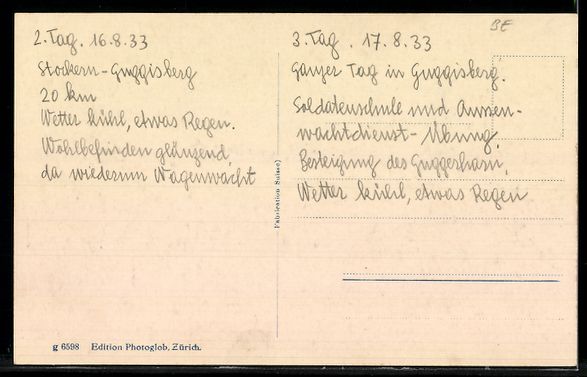 BE
2. Tag. 16.8.33
Stockern-Guggisberg
20 km
Wetter kühl, etwas Regen.
Wohlbefinden glänzend,
da wiederum Wagenwacht
3. Tag. 17.8.33
Ganzer Tag in Guggisberg.
Soldatenschule und Aussen-
wachtdienst-Übung,
Besteigung des Guggershorn,
Wetter kühl, etwas Regen
Fabrication Suisse)
g 6598 Edition Photoglob, Zürich.